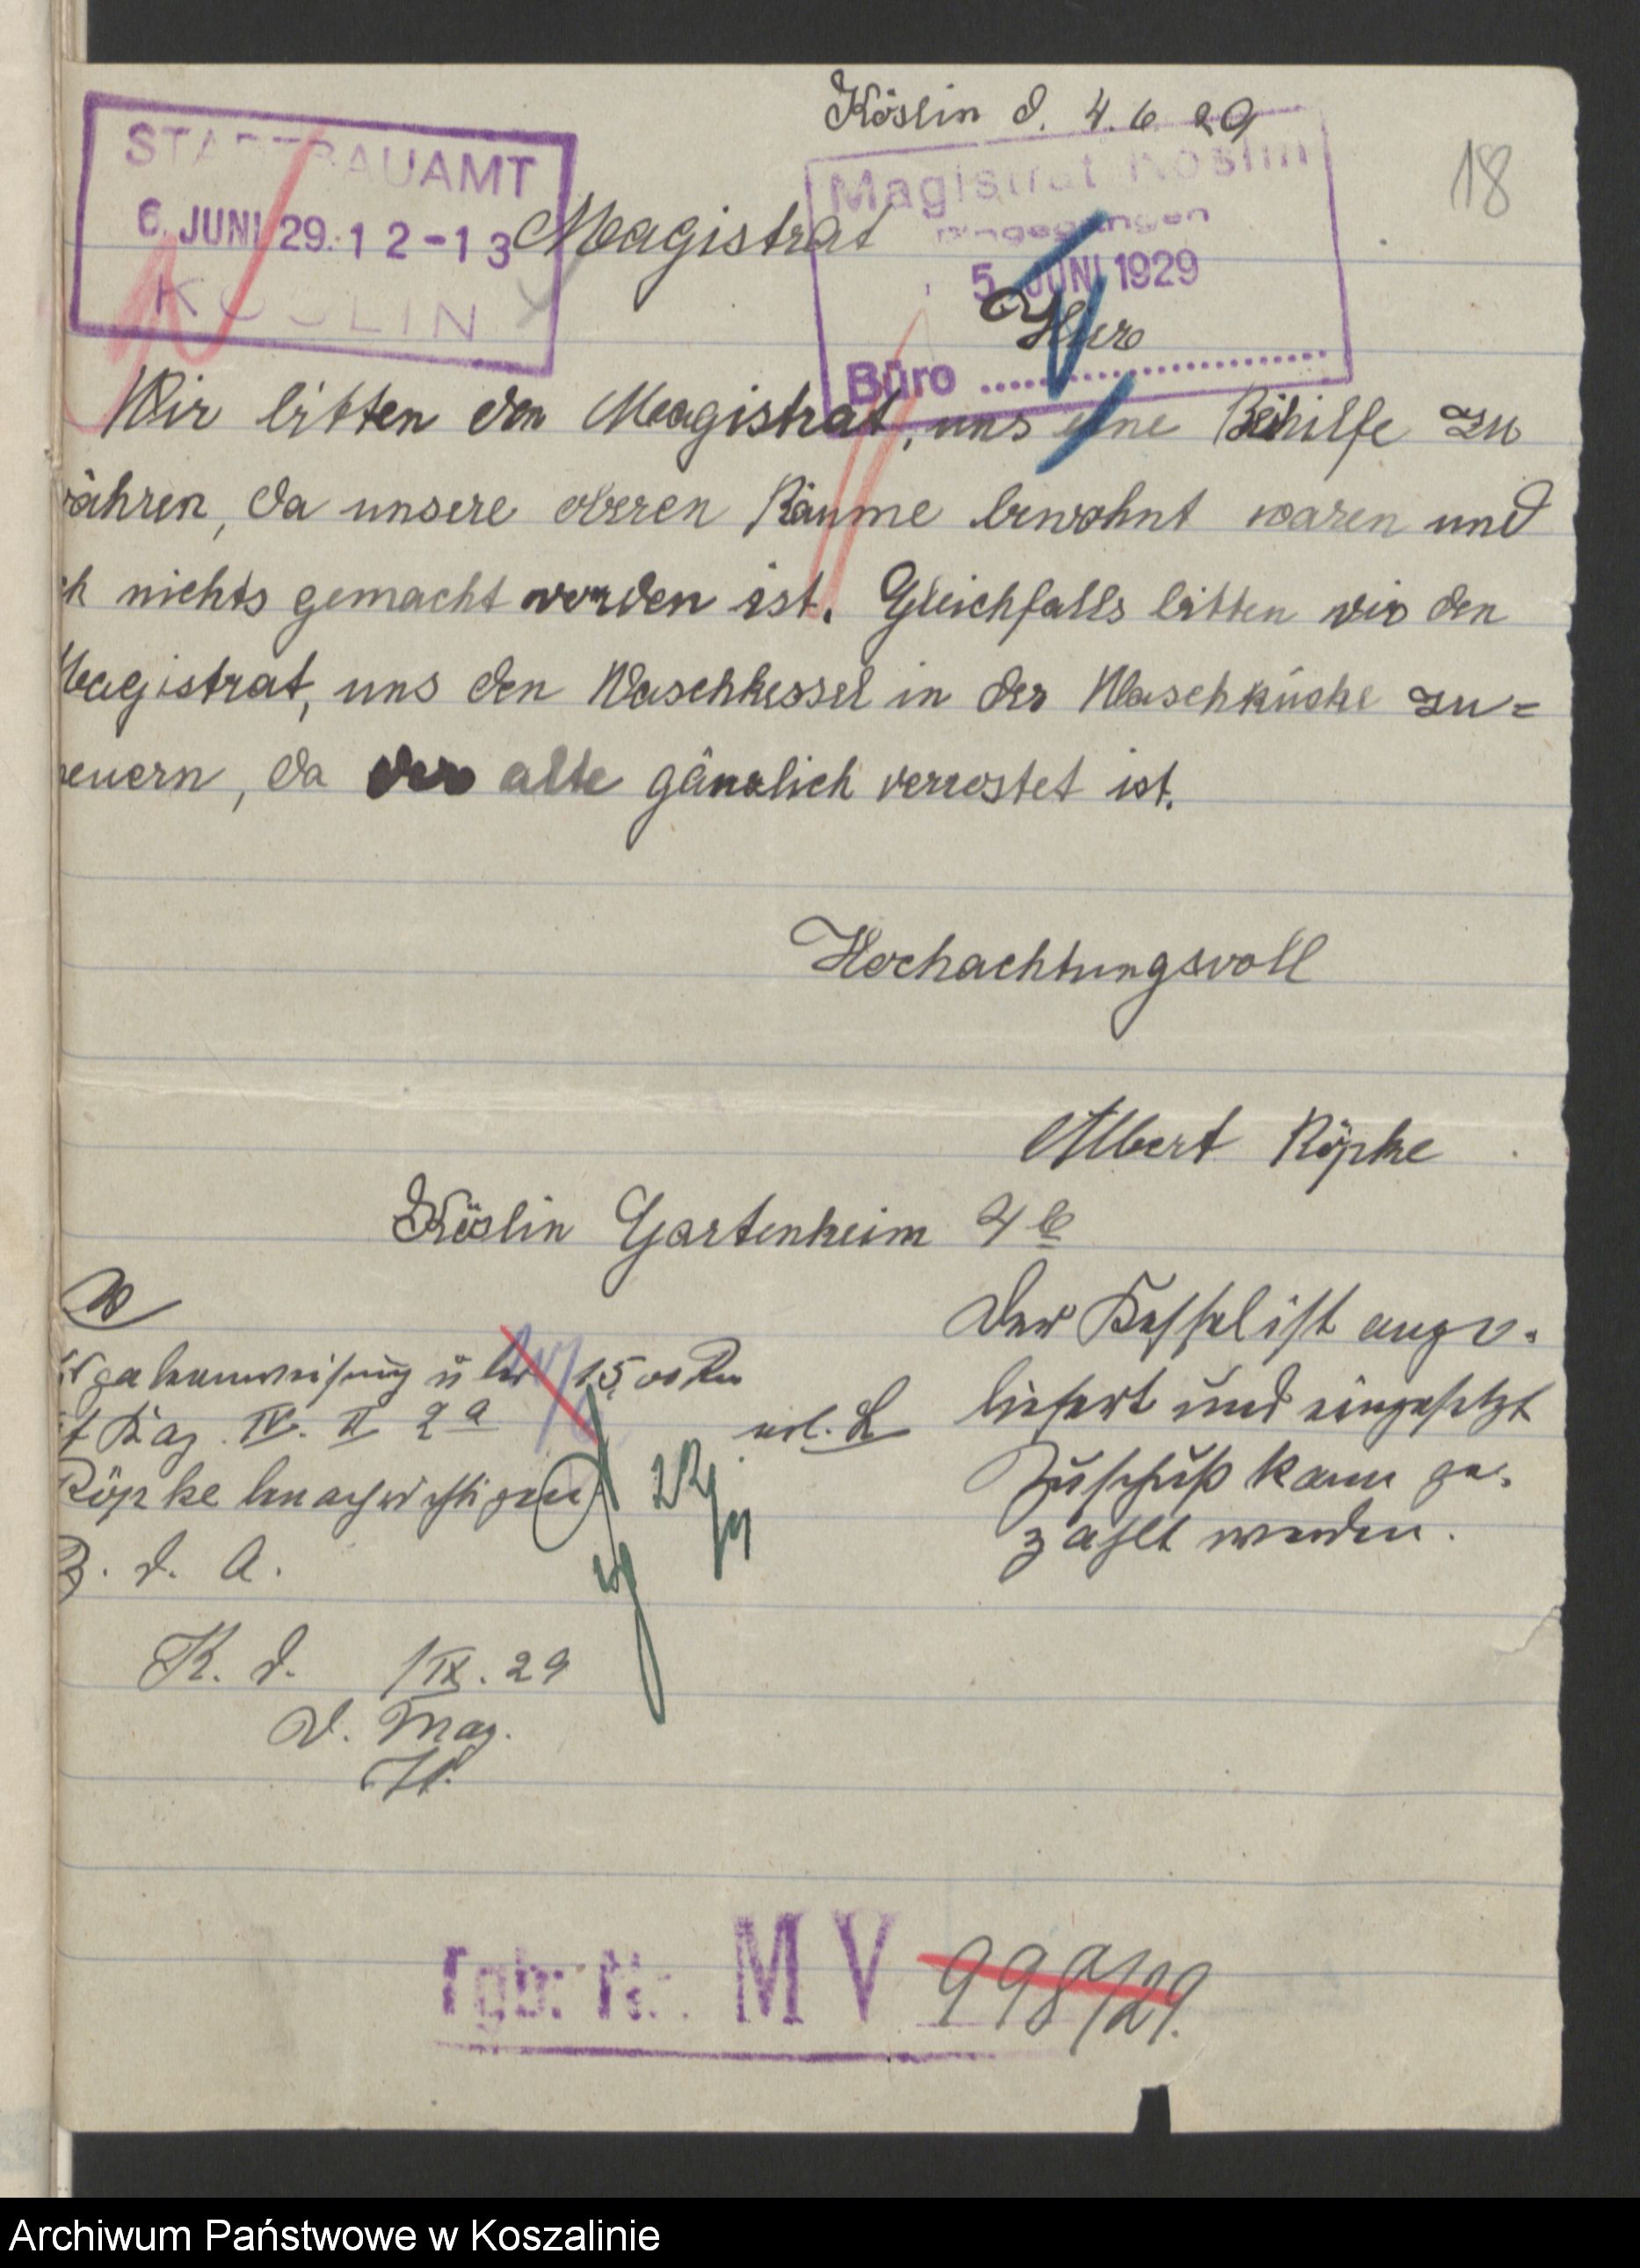 Köslin d. 4.6.29
18
STADTBAUAMT
6. JUNI 29. 12-13
KÖSLIN
Magistrat Köslin
Eingegangen
5. JUNI 1929
Büro
Magistrat
Hier
Wir bitten den Magistrat, uns eine Beihilfe zu
währen, da unsere oberen Räume bewohnt waren und
ch nichts gemacht worden ist. Gleichfalls bitten wir den
Magistrat, uns den Waschkessel in der Waschküche zu=
neuern, da der alte gänzlich verrostet ist.
Hochachtungsvoll
Albert Röpke
Köslin Gartenheim 4b
Der Kessel ist ange-
liefert und eingesetzt
Zuschuß kann ge-
zahlt werden.
gabeanweisung über 15,00 Rm
f Kag. IV. II 2a
erl. L
Röpke benachrichtigen
Z. d. A.
K. d. 1 IX. 29
D. Mag.
Tgb. Nr. M V 998/29.
Archiwum Państwowe w Koszalinie